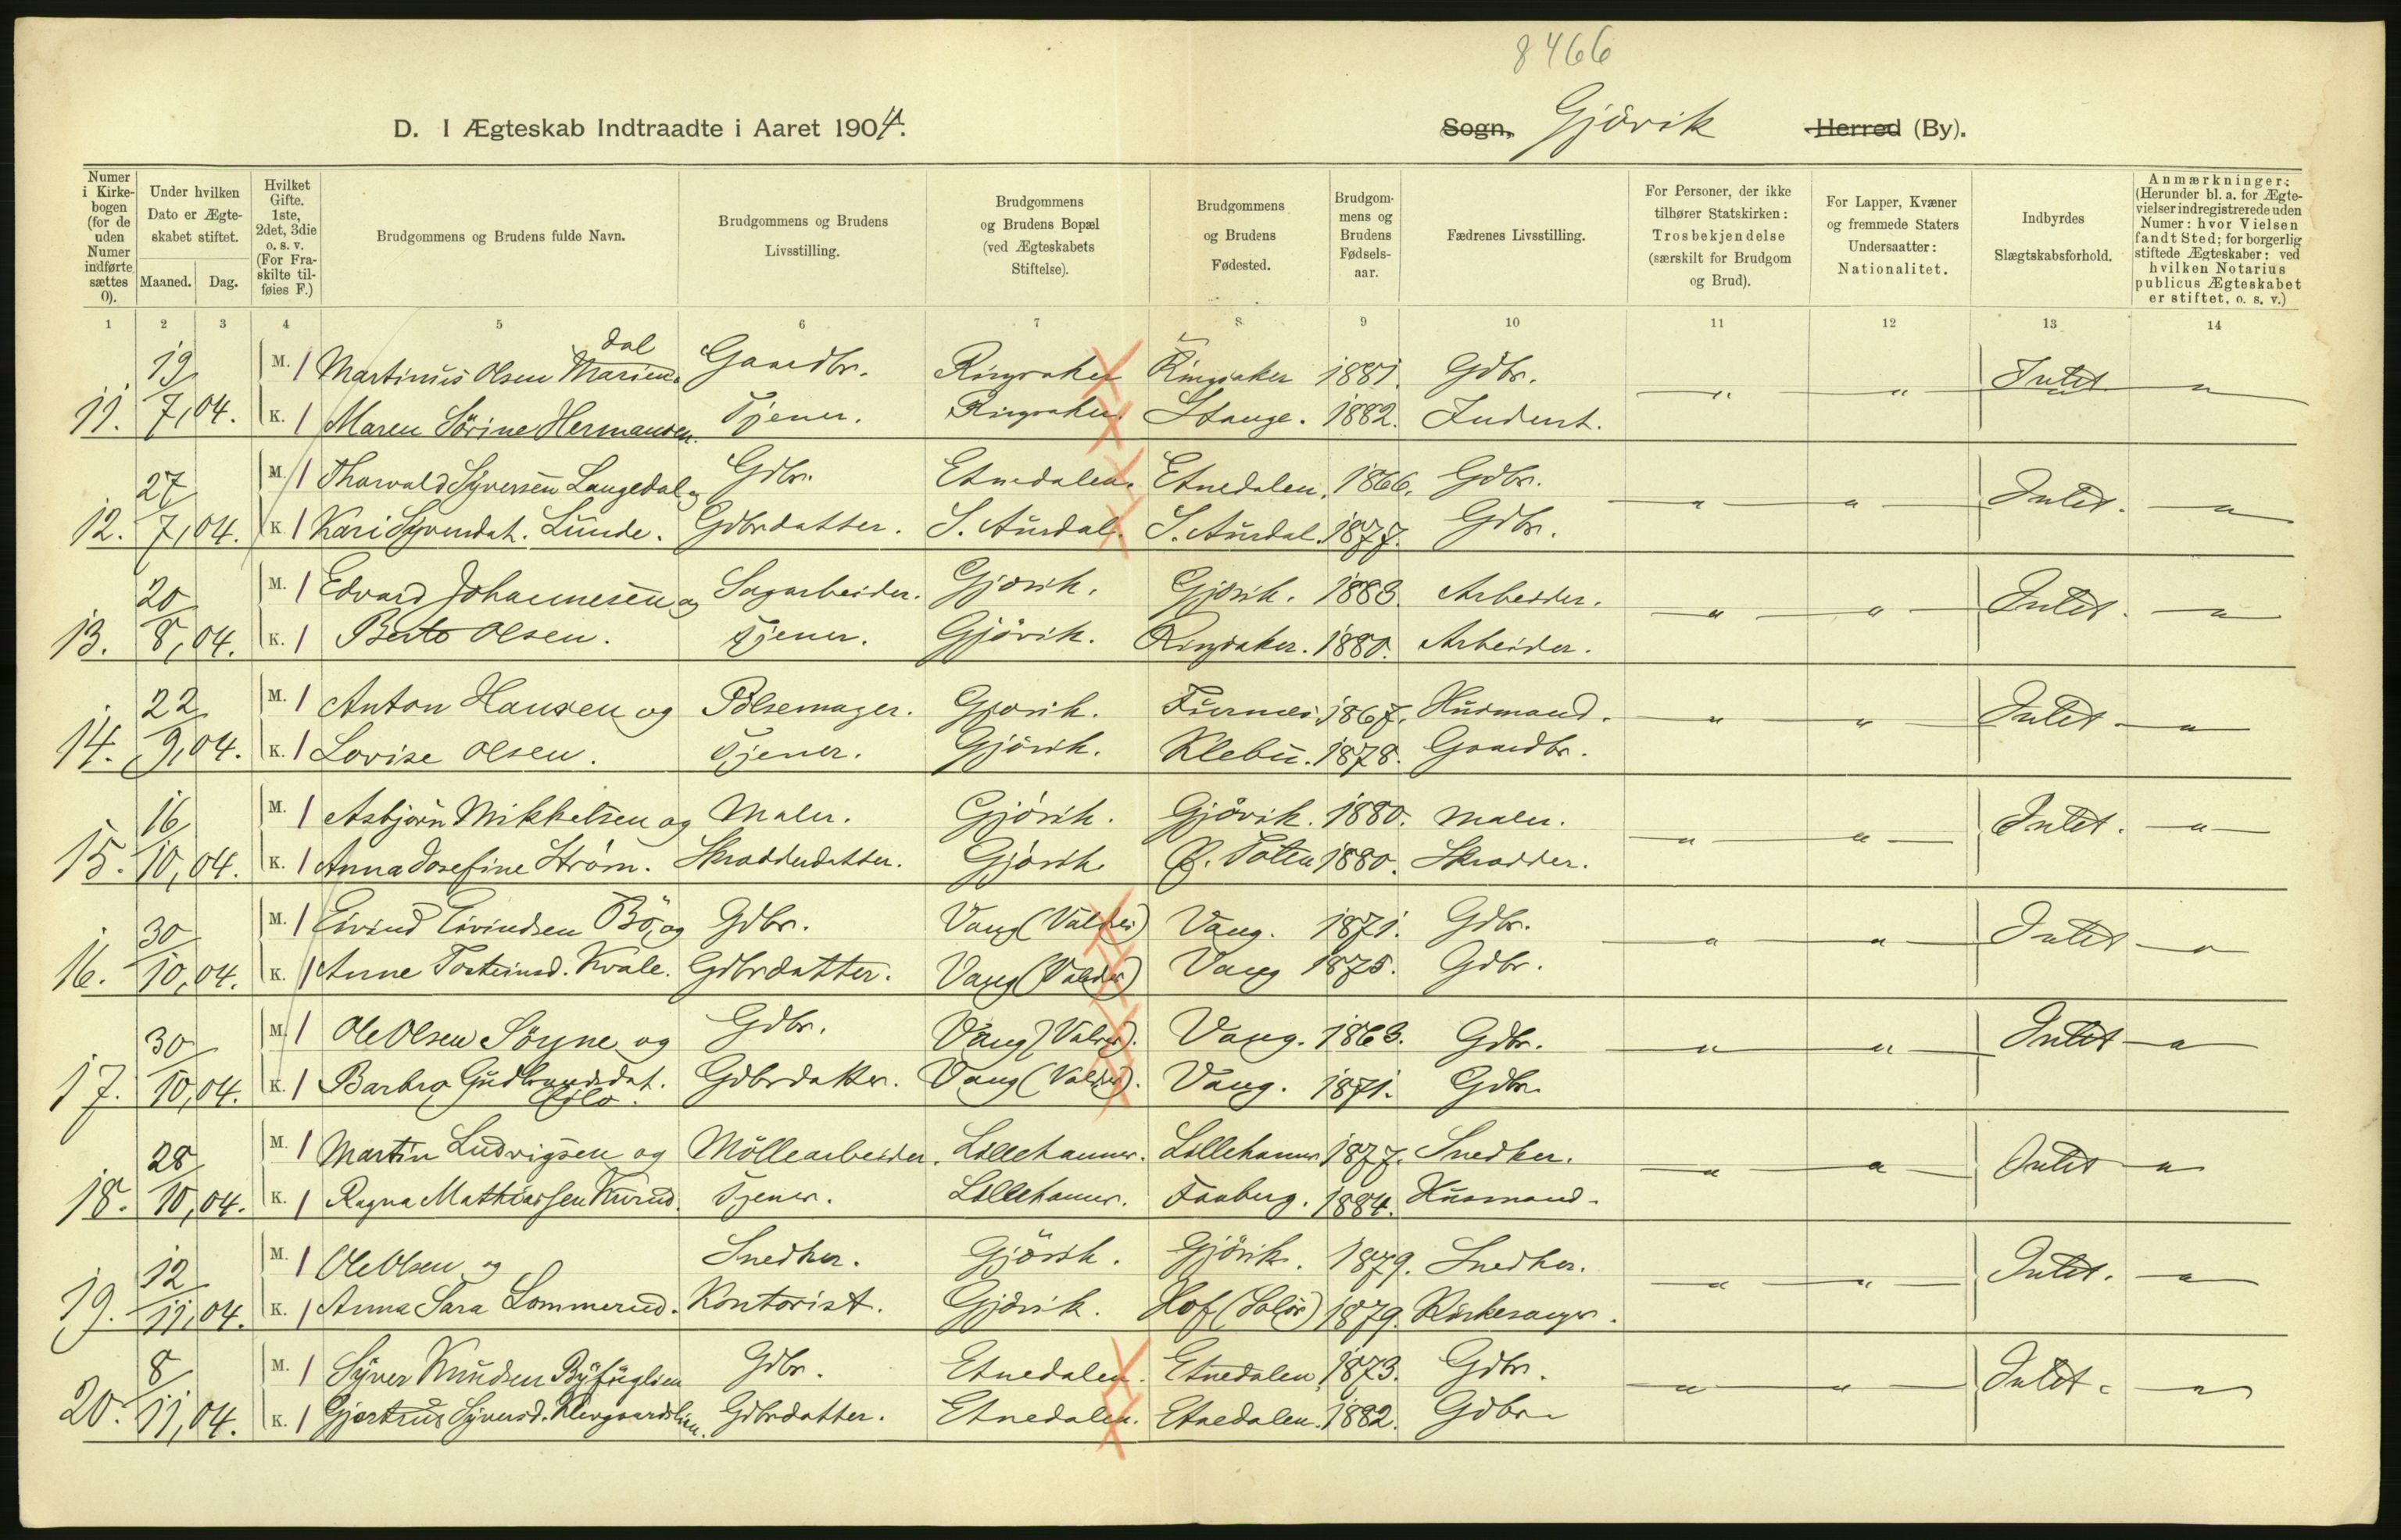 8466
D. I Ægteskab Indtraadte i Aaret 1904.
Sogn, Gjövik Herred (By).
Numer i Kirkebogen (for de uden Numer indførte sættes 0).
Under hvilken Dato er Ægteskabet stiftet.
Maaned. Dag.
Hvilket Gifte. 1ste, 2det, 3die o. s. v. (For Fraskilte tilføies F.)
Brudgommens og Brudens fulde Navn.
Brudgommens og Brudens Livsstilling.
Brudgommens og Brudens Bopæl (ved Ægteskabets Stiftelse).
Brudgommens og Brudens Fødested.
Brudgommens og Brudens Fødselsaar.
Fædrenes Livsstilling.
For Personer, der ikke tilhører Statskirken: Trosbekjendelse (særskilt for Brudgom og Brud).
For Lapper, Kvæner og fremmede Staters Undersaatter: Nationalitet.
Indbyrdes Slægtskabsforhold.
Anmærkninger: (Herunder bl. a. for Ægtevielser indregistrerede uden Numer: hvor Vielsen fandt Sted; for borgerlig stiftede Ægteskaber: ved hvilken Notarius publicus Ægteskabet er stiftet, o. s. v.)
1 2 3 4 5 6 7 8 9 10 11 12 13 14
19 M. 1 Martinus Olsen Mariendal Gaardbr. Ringsaker Ringsaker 1881. Gdbr. " " Intet "
11. 7, 04. K. 1 Maren Sörine Hermansen. Tjener. Ringsaker. Stange. 1882. Inderst.
27 M. 1 Thorvald Syversen Langedal og Gdbr. Etnedalen. Etnedalen. 1866. Gdbr. " " Intet. "
12. 7, 04. K. 1 Kari Syvendat. Lunde. Gdbrdatter. S. Aurdal. S. Aurdal. 1877. Gdbr.
20 M. 1 Edvard Johannesen og Sagarbeider. Gjövik. Gjövik. 1883. Arbeider. " " Intet. "
13. 8, 04. K. 1 Berte Olsen. Tjener. Gjövik. Ringsaker. 1880. Arbeider.
22 M. 1 Anton Hansen og Pölsemager. Gjövik. Furnes. 1867. Husmand. " " Intet "
14. 9, 04. K. 1 Lovise Olsen. Tjener. Gjövik. Klebu. 1878. Gaardbr.
16 M. 1 Asbjörn Mikkelsen og Maler. Gjövik. Gjövik. 1880. Maler. " " Intet. "
15. 10, 04. K. 1 Anna Josefine Ström. Skrædderdatter. Gjövik Ø. Toten 1880. Skrædder.
30 M. 1 Eivind Eivindsen Bö, og Gdbr. Vang (Valdres) Vang. 1871. Gdbr. " " Intet "
16. 10, 04. K. 1 Anne Torsteinsd. Kvale. Gdbrdatter. Vang (Valdres) Vang 1875. Gdbr.
30 M. 1 Ole Olsen Söyne og Gdbr. Vang (Valdres). Vang. 1863. Gdbr. " " Intet "
17. 10, 04. K. 1 Barbro Gudbrandsdat. Gdbrdatter. Vang (Valdres). Vang. 1871. Gdbr.
28 M. 1 Martin Ludvigsen og Möllearbeider. Lillehammer. Lillehammer 1877. Snedker. " " Intet "
18. 10, 04. K. 1 Ragna Mathiassen Kurud. Tjener. Lillehammer. Faaberg. 1884. Husmand.
12 M. 1 Ole Olsen og Snedker. Gjövik. Gjövik. 1879. Snedker. " " Intet. "
19. 11, 04. K. 1 Anna Sara Lommerud. Kontorist. Gjövik. Hof (Solör) 1879. Kirkesanger.
8 M. 1 Syver Knudsen Byfuglien Gdbr. Etnedalen. Etnedalen 1873. Gdbr. " " Intet. "
20. 11, 04. K. 1 Gjertrud Syversd. Klevgaardslien. Gdbrdatter. Etnedalen. Etnedalen. 1882. Gdbr.